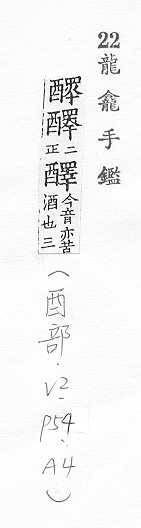 22 龍龕手鑑
二正醳今音亦苦酒也三
(酉部．V2-P54．A4)